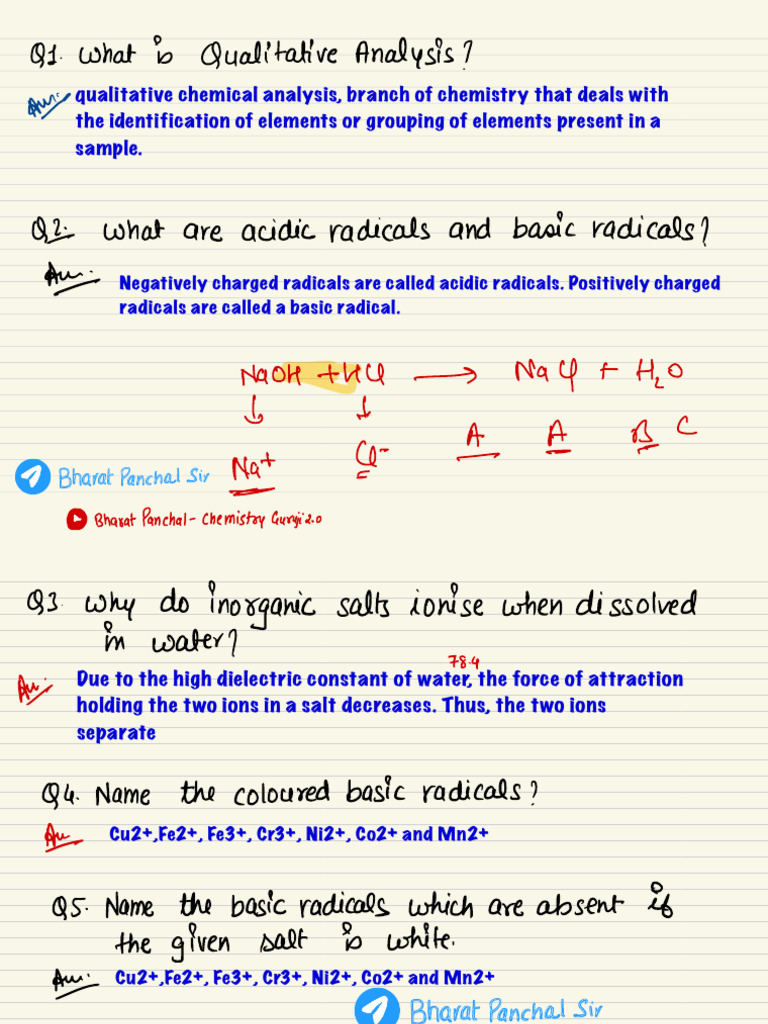 Q1. What is Qualitative Analysis?
Ans:- qualitative chemical analysis, branch of chemistry that deals with
the identification of elements or grouping of elements present in a
sample.
Q2. What are acidic radicals and basic radicals?
Ans:-
Negatively charged radicals are called acidic radicals. Positively charged
radicals are called a basic radical.
NaOH + HCl → NaCl + H2O
↓ ↓
Na+ Cl- A A B C
Bharat Panchal Sir
Bharat Panchal - Chemistry Guruji 2.0
Q3. Why do inorganic salts ionise when dissolved
in water?
78.4
Ans:- Due to the high dielectric constant of water, the force of attraction
holding the two ions in a salt decreases. Thus, the two ions
separate
Q4. Name the coloured basic radicals?
Ans Cu2+,Fe2+, Fe3+, Cr3+, Ni2+, Co2+ and Mn2+
Q5. Name the basic radicals which are absent if
the given salt is white.
Ans:- Cu2+,Fe2+, Fe3+, Cr3+, Ni2+, Co2+ and Mn2+
Bharat Panchal Sir